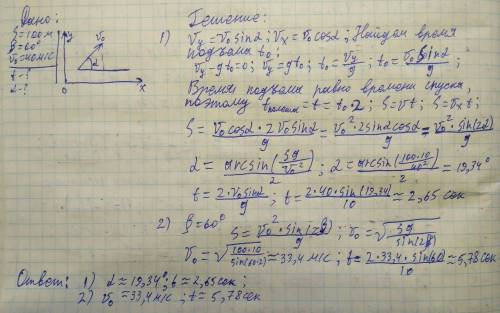 Дано:
S=100м
β=60°
V₀=40м/с
t-?
α-?
y
V₀
α
0
x
Решение:
1) Vy=V₀sinα; Vx=V₀cosα; Найдём время
подъёма t₀:
Vy-gt₀=0; Vy=gt₀; t₀=Vy/g; t₀=V₀sinα/g;
Время подъёма равно времени спуска,
поэтому tполёта=t=t₀·2; S=Vt; S=Vxt;
S=V₀cosα·2V₀sinα/g=V₀²·2sinαcosα/g=V₀²·sin(2α)/g
α=arcsin(Sg/V₀²)/2; α=arcsin(100·10/40²)/2=19,34°
t=2·V₀sinα/g; t=2·40·sin(19,34)/10≈2,65сек
2) β=60° S=V₀²·sin(2β)/g; V₀=√(Sg/sin(2β))
V₀=√(100·10/sin(60·2))≈33,4м/с; t=2·33,4·sin(60)/10≈5,78сек
Ответ: 1) α≈19,34°; t≈2,65сек;
2) V₀≈33,4м/с; t≈5,78сек